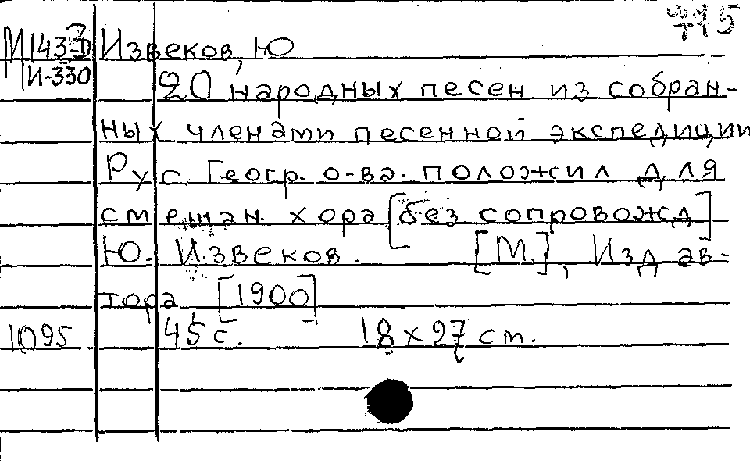 715
М1433 Извеков, Ю
И-330
20 народных песен из собран-
ных членами песенной экспедиции
Рус. Геогр. о-ва. положил для
смешан. хора [без сопровожд]
Ю. Извеков. [М.], Изд ав-
тора, [1900]
1095 45 с. 18 х 27 см.